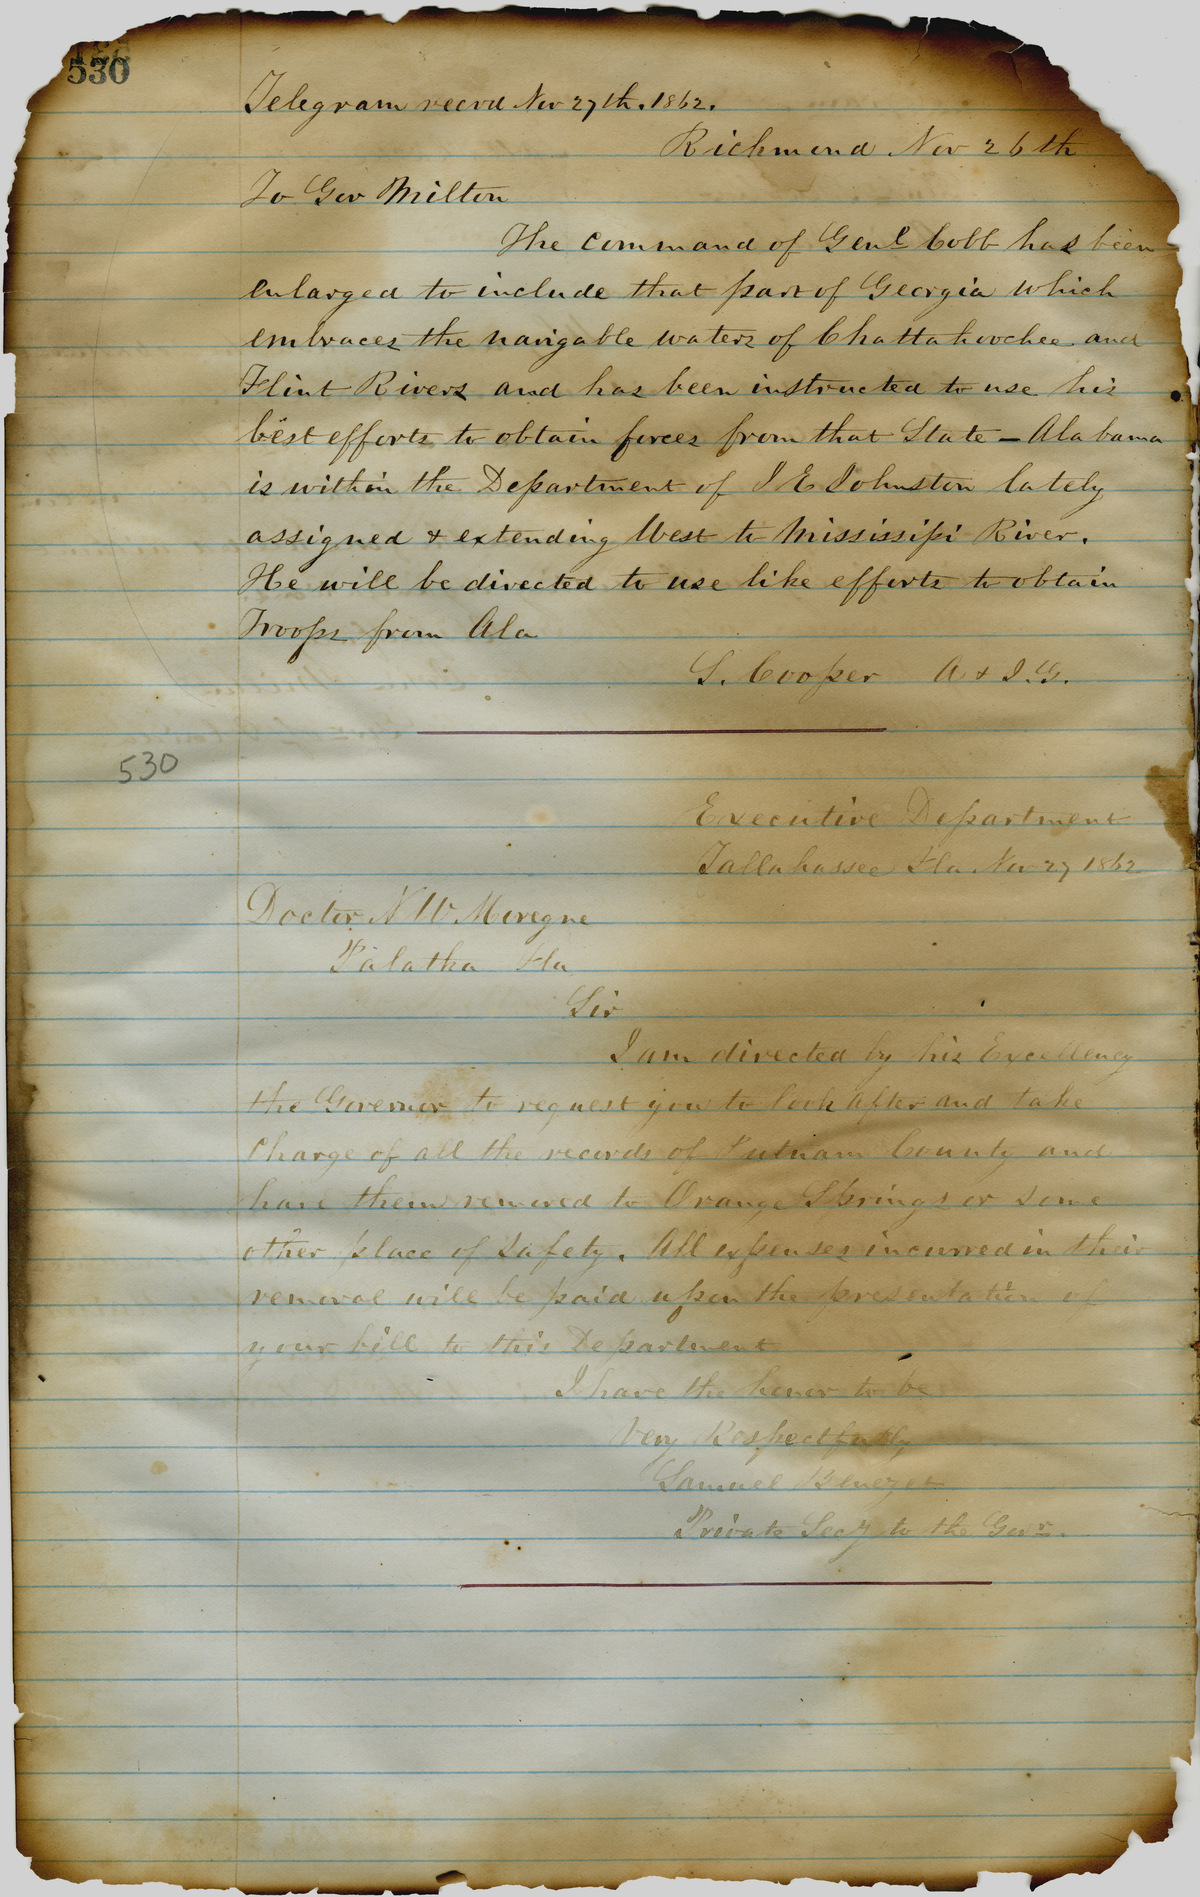 530
Telegram recvd Nov 27th. 1862.
Richmond Nov 26th
To Gov Milton
The command of Genl Cobb has been
enlarged to include that part of Georgia which
embraces the navigable waters of Chattahoochee and
Flint Rivers and has been instructed to use his
best efforts to obtain forces from that State - Alabama
is within the Department of J E Johnston lately
assigned & extending West to Mississipi River.
He will be directed to use like efforts to obtain
Troops from Ala
S. Cooper A & I.G.
530
Executive Department
Tallahassee Fla Nov 27 1862
Doctor N W Moregne
Palatka Fla
Sir
I am directed by his Excellency
the Governor to request you to look after and take
charge of all the records of Putnam County and
have them removed to Orange Springs or some
other place of safety. All expenses incurred in their
removal will be paid upon the presentation of
your bill to this Department
I have the honor to be
Very Respectfully
Samuel Benezet
Private Secy to the Govr.